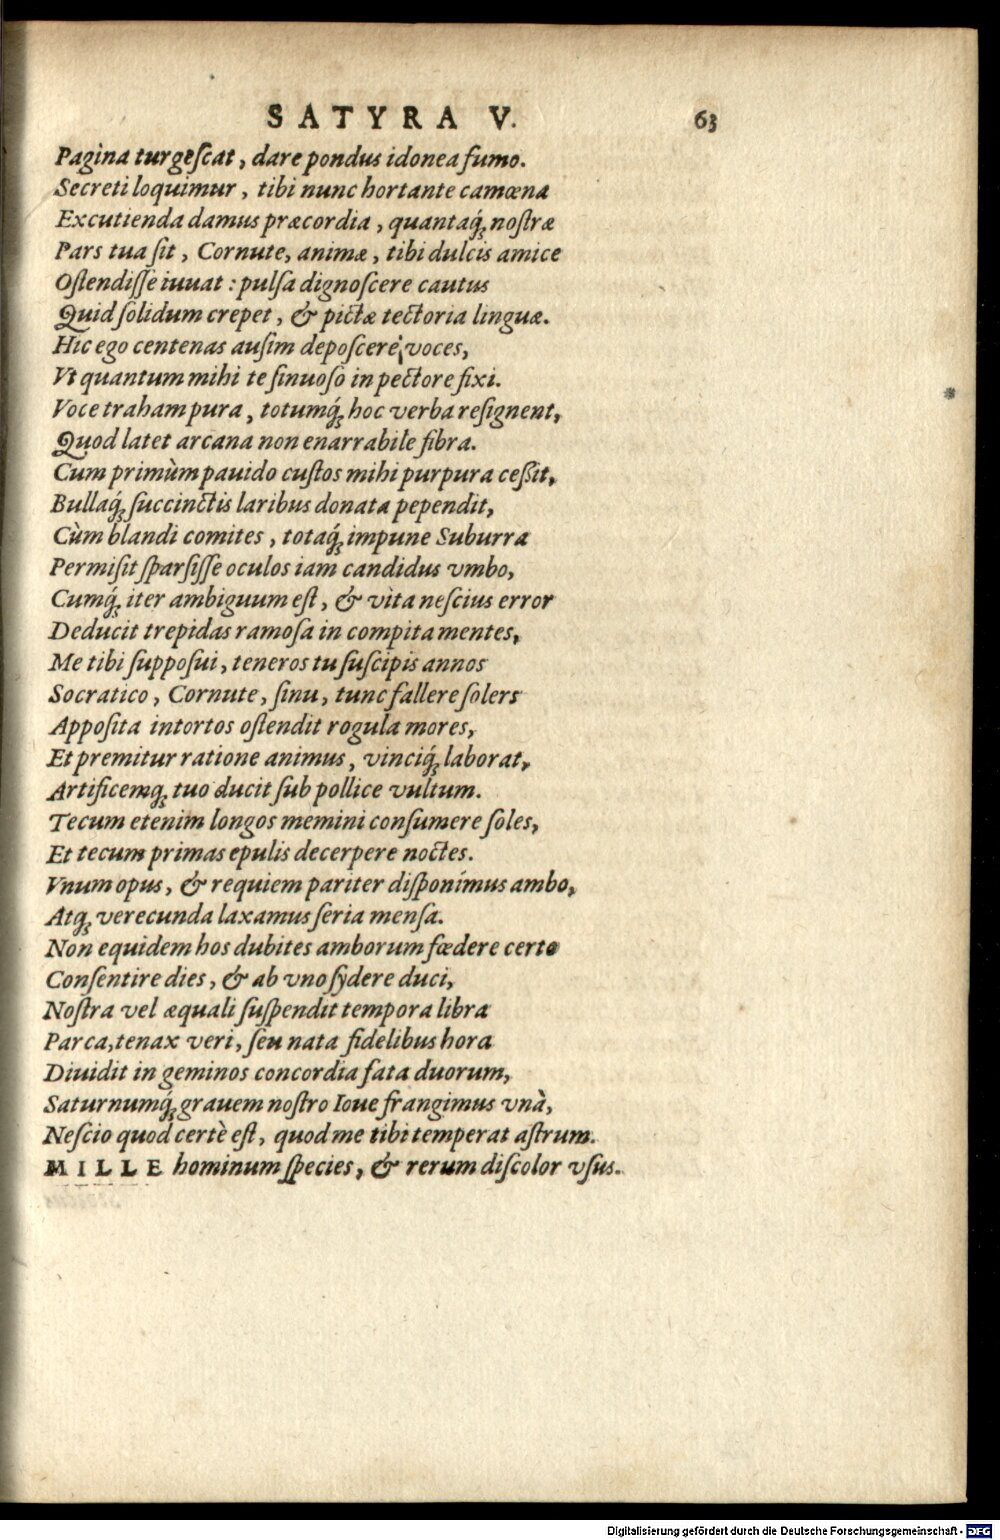 SATYRA V. 63
Pagina turgeſcat, dare pondus idonea fumo.
Secreti loquimur, tibi nunc hortante camœna
Excutienda damus præcordia, quantaq́; noſtræ
Pars tua ſit, Cornute, animæ, tibi dulcis amice
Oſtendiſſe iuuat: pulſa dignoſcere cautus
Quid ſolidum crepet, & pictæ tectoria linguæ.
Hic ego centenas auſim depoſcere voces,
Vt quantum mihi te ſinuoſo in pectore fixi.
Voce traham pura, totumq́; hoc verba reſignent,
Quod latet arcana non enarrabile fibra.
Cum primùm pauido cuſtos mihi purpura ceßit,
Bullaq́; ſuccinctis laribus donata pependit,
Cùm blandi comites, totaq́; impune Suburra
Permiſit ſparſiſſe oculos iam candidus vmbo,
Cumq́; iter ambiguum eſt, & vita neſcius error
Deducit trepidas ramoſa in compita mentes,
Me tibi ſuppoſui, teneros tu ſuſcipis annos
Socratico, Cornute, ſinu, tunc fallere ſolers
Appoſita intortos oſtendit rogula mores,
Et premitur ratione animus, vinciq́; laborat,
Artificemq; tuo ducit ſub pollice vultum.
Tecum etenim longos memini conſumere ſoles,
Et tecum primas epulis decerpere noctes.
Vnum opus, & requiem pariter diſponimus ambo,
Atq; verecunda laxamus ſeria menſa.
Non equidem hos dubites amborum fœdere certo
Conſentire dies, & ab vno ſydere duci,
Noſtra vel æquali ſuſpendit tempora libra
Parca, tenax veri, ſeu nata fidelibus hora
Diuidit in geminos concordia fata duorum,
Saturnumq́; grauem noſtro Ioue frangimus vnà,
Neſcio quod certè eſt, quod me tibi temperat aſtrum.
MILLE hominum ſpecies, & rerum diſcolor vſus.
Digitalisierung gefördert durch die Deutsche Forschungsgemeinschaft - DFG